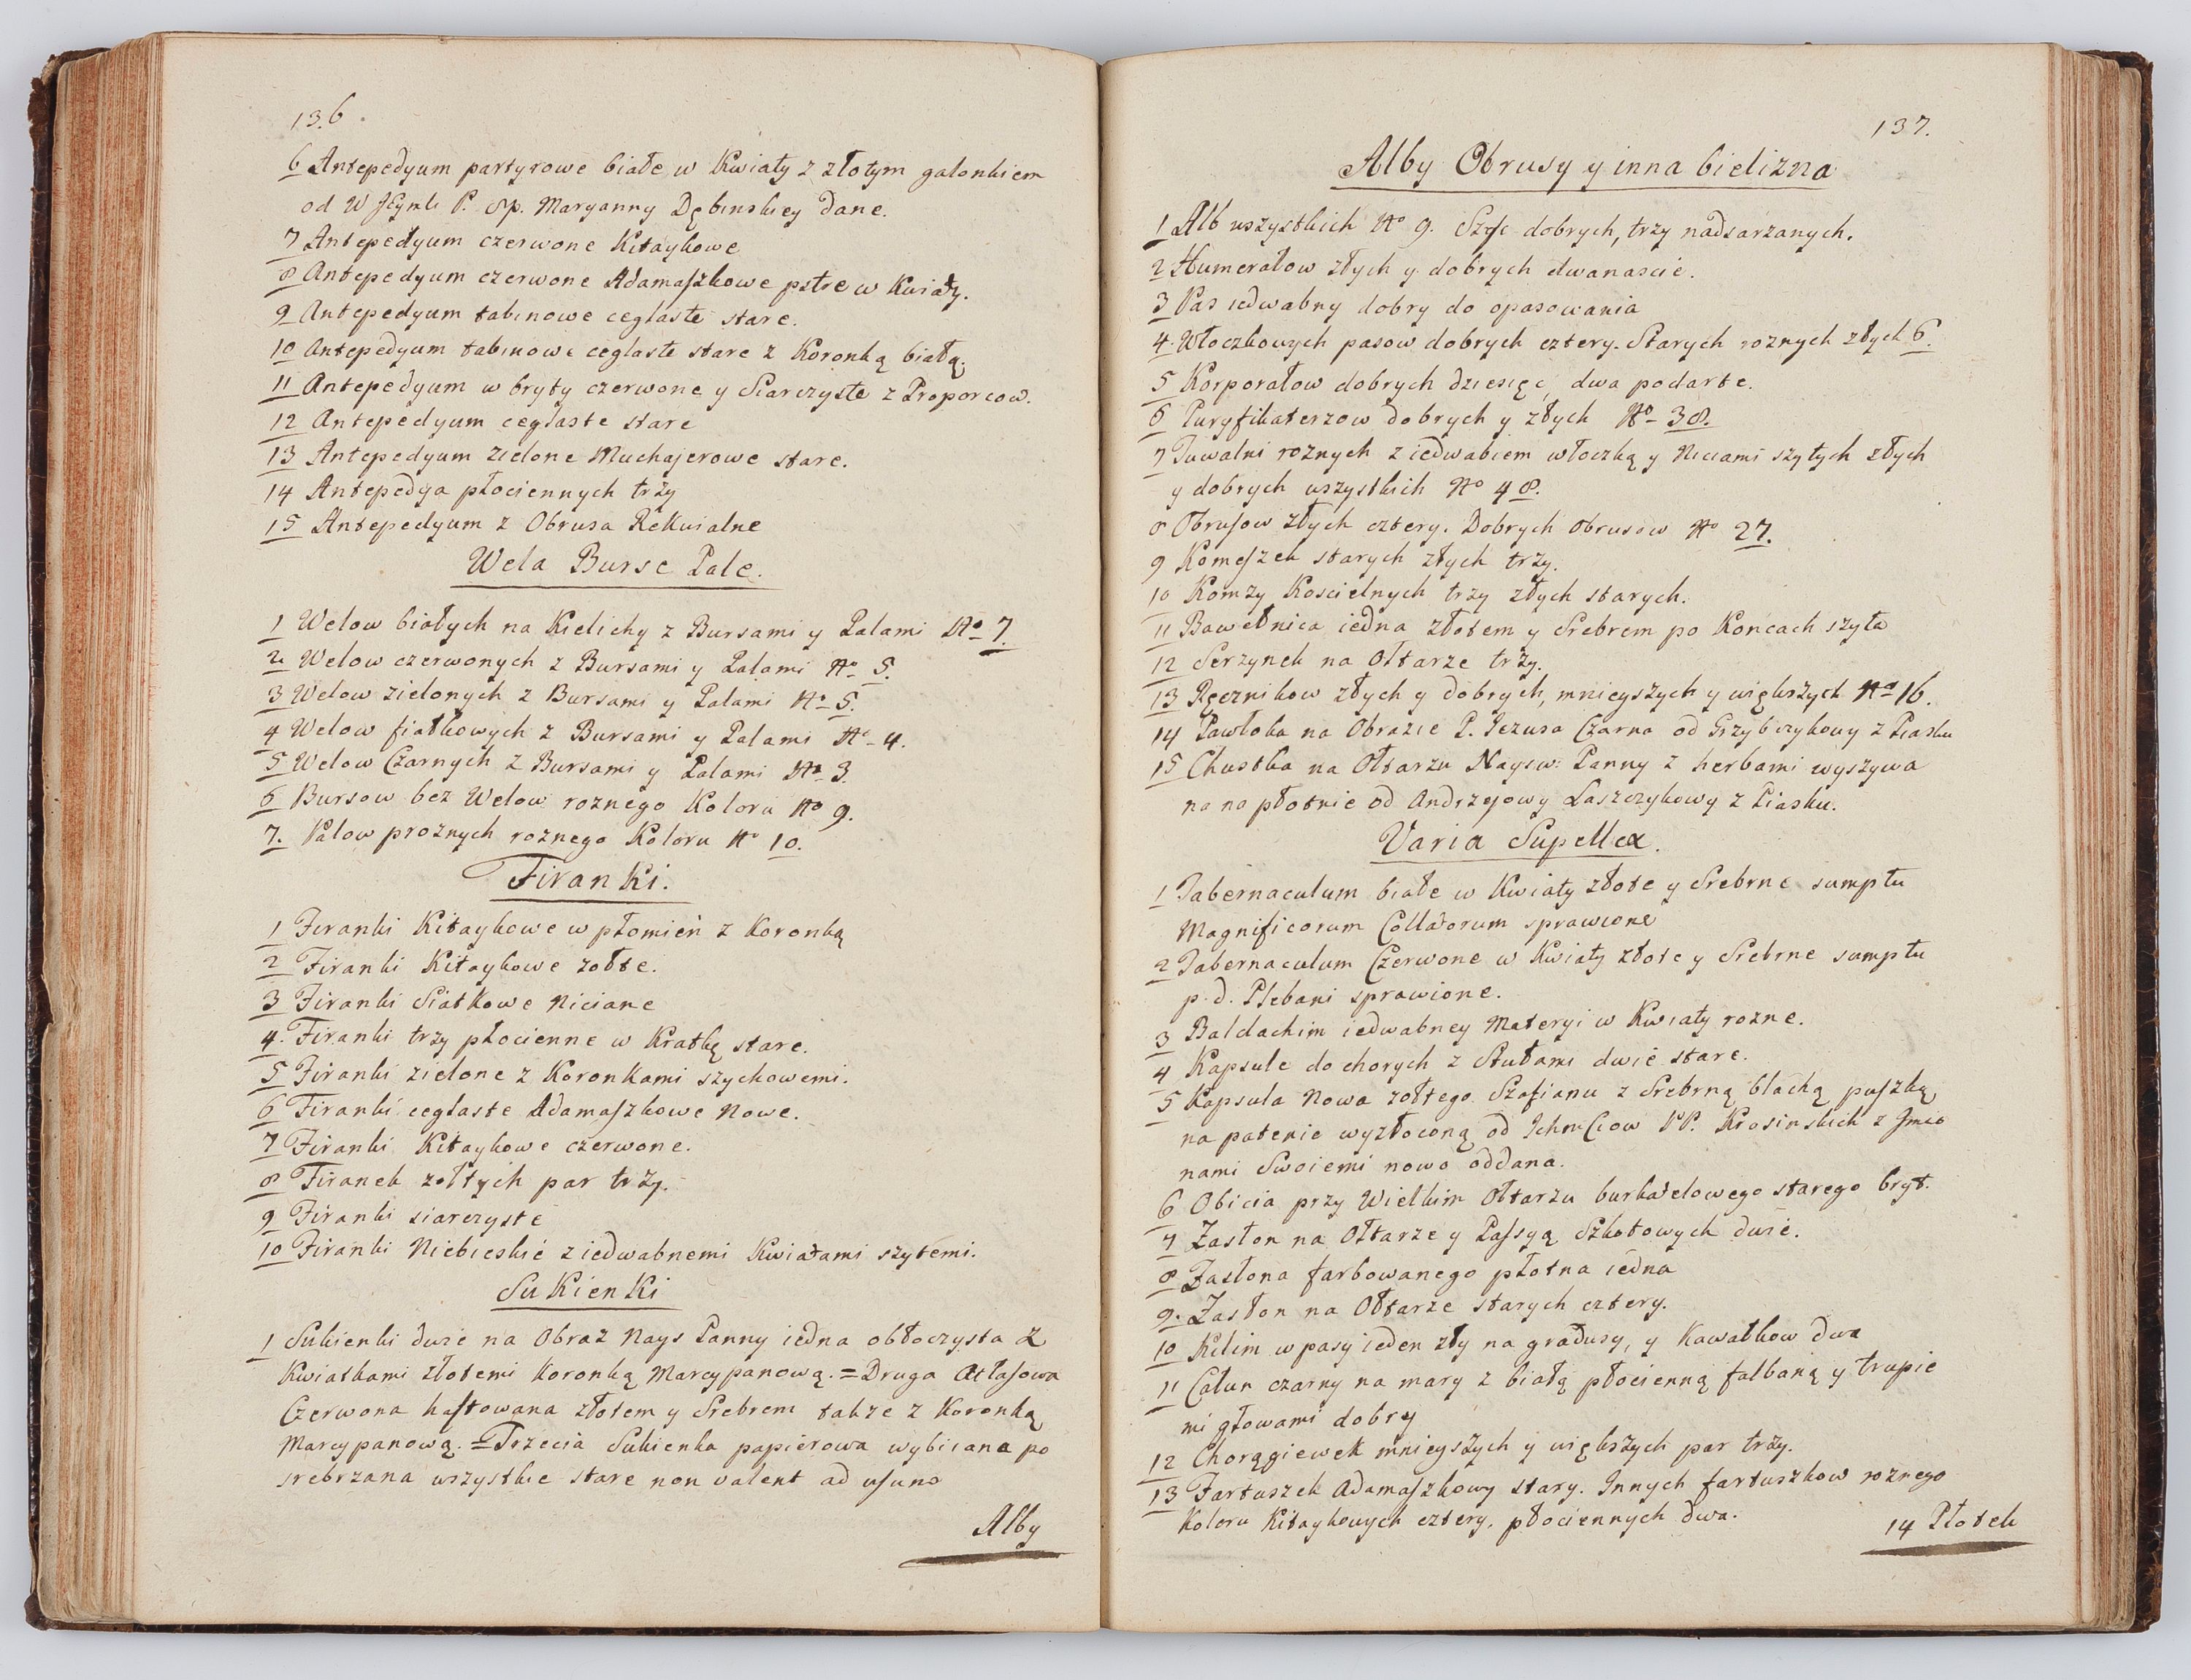 136.
6 Antepedyum partyrowe białe w Kwiaty z złotym galonkiem
od W P. Sp. Maryanny Dębinskiey dane.
7 Antepedyum czerwone Kitaykowe
8 Antepedyum czerwone Adamaszkowe pstre w Kwiaty.
9 Antepedyum tabinowe ceglaste stare.
10 Antepedyum tabinowe ceglaste stare z Koronką białą.
11 Antepedyum w bryty czerwone y Siarczyste z Proporcow.
12 Antepedyum ceglaste stare
13 Antepedyum zielone Muchajerowe stare.
14 Antepedya płociennych trzy
15 Antepedyum z Obrusa Rekwialne
Wela Burse Pale.
1 Welow białych na Kielichy z Bursami y Palami No 7.
2 Welow czerwonych z Bursami y Palami No 5.
3 Welow zielonych z Bursami y Palami No 5.
4 Welow fiałkowych z Bursami y Palami No 4.
5 Welow Czarnych z Bursami y Palami No 3.
6 Bursow bez Welow roznego Koloru No 9.
7. Palow proznych roznego Koloru No 10.
Firanki.
1 Firanki Kitaykowe w płomień z Koronką
2 Firanki Kitaykowe zołte.
3 Firanki Siatkowe Niciane
4. Firanki trzy płocienne w Kratkę stare.
5 Firanki zielone z Koronkami szychowemi.
6 Firanki ceglaste Adamaszkowe Nowe.
7 Firanki Kitaykowe czerwone.
8 Firanek zołtych par trzy.
9 Firanki siarczyste
10 Firanki Niebieskie z iedwabnemi Kwiatami szytemi.
Sukienki
1 Sukienki dwie na Obraz Nays Panny iedna obłoczysta z
Kwiatkami złotemi Koronką Marcypanową. = Druga Atłasowa
Czerwona haftowana złotem y Srebrem także z Koronką
Marcypanową. = Trzecia Sukienka papierowa wybiiana po
srebrzana wszystkie stare non valent ad usuno
Alby
137.
Alby Obrusy y inna bielizna
1 Alb wszystkich No 9. Szesc dobrych, trzy nadsarzanych.
2 Humerałow złych y dobrych dwanascie.
3 Pas iedwabny dobry do opasowania
4. Włoczkowych pasow dobrych cztery. Starych roznych złych 6.
5 Korporałow dobrych dziesięć, dwa podarte.
6 Puryfikaterzow dobrych y złych No 38.
7 Tuwalni roznych z iedwabiem włoczką y Niciami szytych złych
y dobrych wszystkich No 48.
8 Obrusow złych cztery. Dobrych obrusow No 27.
9 Komeszek starych złych trzy.
10 Komzy Koscielnych trzy złych starych.
11 Bawełnica iedna złotem y Srebrem po Koncach szyta
12 Serzynek na Ołtarze trzy.
13 Ręcznikow złych y dobrych, mnieyszych y większych No 16.
14 Pawłoka na Obrazie P. Jezusa Czarna od Grzybczykowy z Piasku
15 Chustka na Ołtarzu Naysw: Panny z herbami wyszywa
na na płotnie od Andrzejowy Laszczykowy z Piasku.
Varia Supellex.
1 Tabernaculum białe w Kwiaty złote y Srebrne sumptu
Magnificorum Collatorum sprawione
2 Tabernaculum Czerwone w Kwiaty złote y Srebrne sumptu
p. d. Plebani sprawione.
3 Baldachim iedwabney Materyi w Kwiaty rozne.
4 Kapsule do chorych z Stułami dwie stare.
5 Kapsula Nowa zołtego Szafianu z Srebrną blachą puszką
na patenie wyzłoconą od Ichmciow PP. Krosinskich z Jmio
nami Swoiemi nowo oddana.
6 Obicia przy Wielkim Ołtarzu burkatelowego starego bryt.
7 Zasłon na Ołtarze y Passyą Szkotowych dwie.
8 Zasłona farbowanego płotna iedna
9. Zasłon na Ołtarze starych cztery.
10 Kilim w pasy ieden zły na gradusy, y Kawałkow dwa
11 Całun czarny na mary z białą płocienną falbaną y trupie
mi głowami dobry
12 Chorągiewek mnieyszych y większych par trzy.
13 Fartuszek Adamaszkowy stary. Innych fartuszkow roznego
Koloru Kitaykowych cztery, płociennych dwa.
14 Płotek